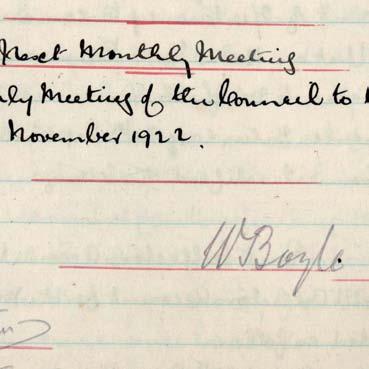 Next Monthly Meeting
ly Meeting of the Council to
November 1922.
W Boyle.